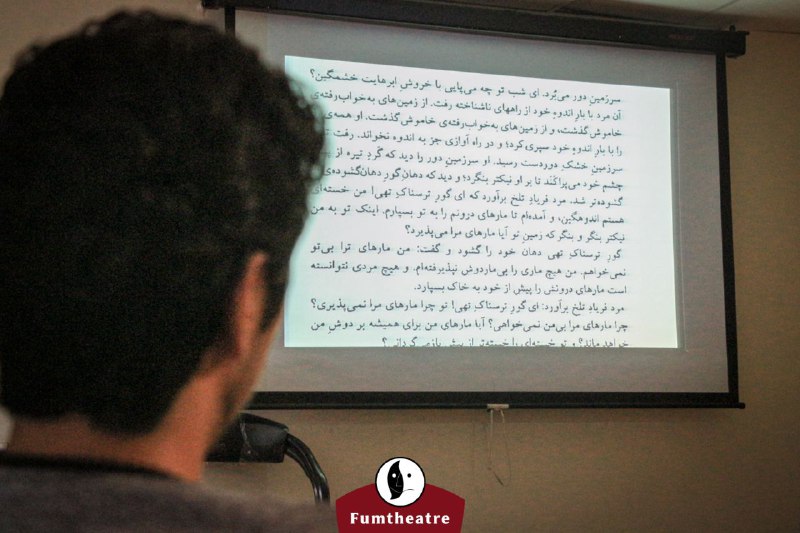 سرزمینِ دور می‌بُرد. ای شب تو چه می‌پایی با خروشِ ابرهایت خشمگین؟
آن مرد با بارِ اندوهِ خود از راههای ناشناخته رفت. از زمین‌های به‌خواب‌رفته‌ی
خاموش گذشت، و از زمین‌های به‌خواب‌رفته‌ی خاموش گذشت. او همه‌ی
را با بارِ اندوهِ خود سپری کرد؛ و در راه آوازی جز به اندوه نخواند. رفت تا
سرزمینِ خشکِ دوردست رسید. او سرزمینِ دور را دید که گَردِ تیره از
چشم خود می‌پراکَنَد تا بر او نیکتر بنگرد؛ و دید که دهان‌گورِ دهان‌گشوده‌ی
گشوده‌تر شد. مرد فریادِ تلخ برآورد که ای گورِ ترسناکِ تهی! من خسته‌ای
هستم اندوهگین، و آمده‌ام تا مارهای درونم را به تو بسپارم. اینک تو به من
نیکتر بنگر و بنگر که زمینِ تو آیا مارهای مرا می‌پذیرد؟
گورِ ترسناکِ تهی دهان خود را گشود و گفت: من مارهای ترا بی‌تو
نمی‌خواهم. من هیچ ماری را بی‌ماردوش نپذیرفته‌ام. و هیچ مردی نتوانسته
است مارهای درونش را پیش از خود به خاک بسپارد.
مرد فریادِ تلخ برآورد: ای گورِ ترسناکِ تهی! تو چرا مارهای مرا نمی‌پذیری؟
چرا مارهای مرا بی‌من نمی‌خواهی؟ آیا مارهای من برای همیشه بر دوشِ من
خواهد ماند؟ و تو خسته‌ای را خسته‌تر از پیش بازمی‌گردانی؟
Fumtheatre